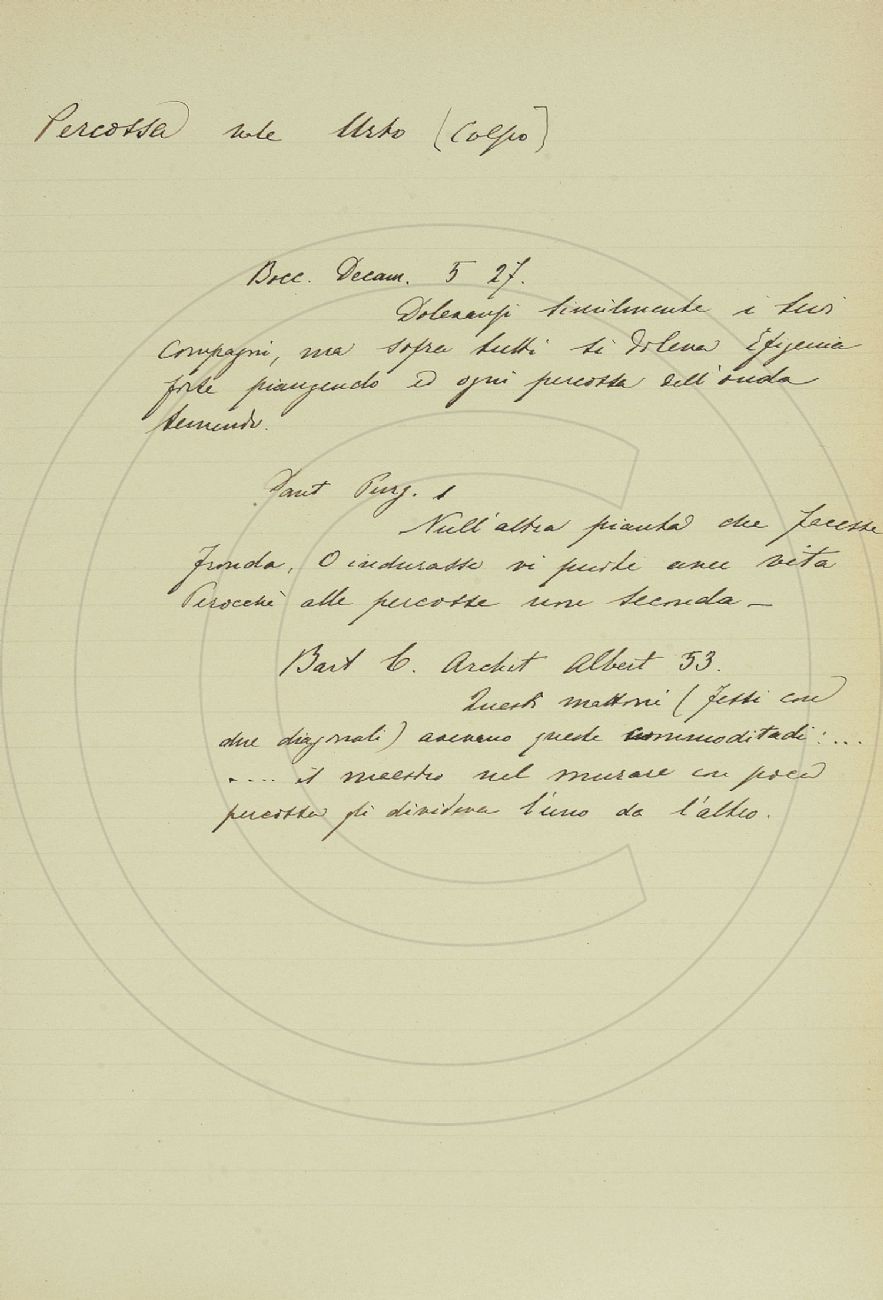 Percossa vale Urto (Colpo)
Bocc. Decam. 5 27.
Dolevansi similmente i suoi
compagni, ma sopra tutti si doleva Efigenia
forte piangendo ed ogni percossa dell'onda
temendo.
Dant Purg. 1
Null'altra pianta che facesse
fronda, O indurasse vi puote aver vita
Perocchè alle percosse non seconda —
Bart C. Archit Albert 53.
Questi mattoni (fessi con
due diagonali) avevano queste commoditadi: ...
.... il maestro nel murare con poca
percossa gli divideva l'uno da l'altro.